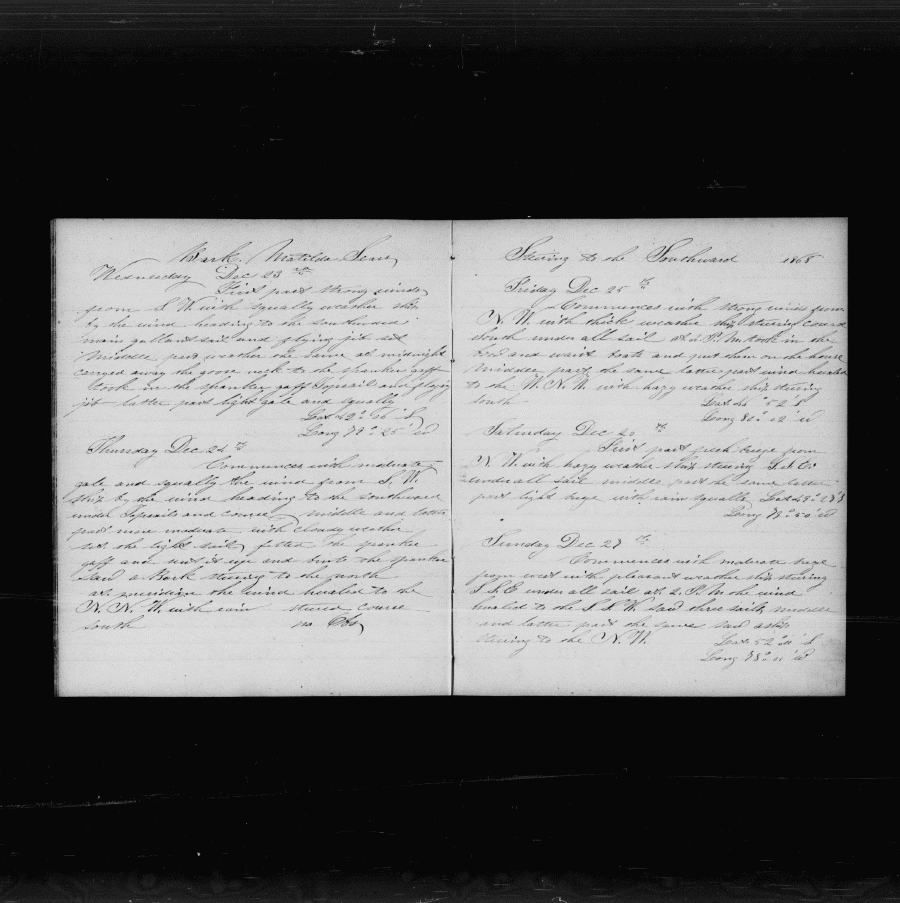 Bark Matilda Sears
Wednesday Dec 23 th
First part strong winds
from S W with squally weather ship
by the wind heading to the southward
main gallant sail and flying jib set
Middle part weather the same at midnight
carryed away the goose neck to the spanker gaff
took in the spanker gaff Topsail and flying
jib latter part light gale and squally
Lat 49° S
Long 78° 25' W
Thursday Dec 24 th
Commences with moderate
gale and squally the wind from S. W.
ship by the wind heading to the southward
under Topsails and courses middle and latter
part more moderate with cloudy weather
set the light sails fitted the spanker
gaff and sent it up and bent the spanker
Saw a Bark steering to the north
at meridian the wind hauled to the
N. N. W. with rain steered course
south no Obs
Steering to the Southward 1868
Friday Dec 25 th
Commences with strong winds from
N. W. with thick weather ship steering course
South under all sail at 2 P. M. took in the
bow and waist boats and put them on the house
middle part the same latter part wind hauled
to the W. N. W. with hazy weather ship steering
south Lat 46° 52' S
Long 80° 12' W
Saturday Dec 26 th
First part fresh breeze from
N. W. with hazy weather ship steering S. S. E.
under all sail middle part the same latter
part light breze with rain squalls Lat 49° 28' S
Long 79° 50' W
Sunday Dec 27 th
Commences with moderate breze
from west with pleasant weather ship steering
S. S. E under all sail at 2. P. M the wind
hauled to the S. S. W. Saw three sails middle
and latter part the same saw a ship
steering to the N. W. Lat 52° 11' S
Long 78° 11' W